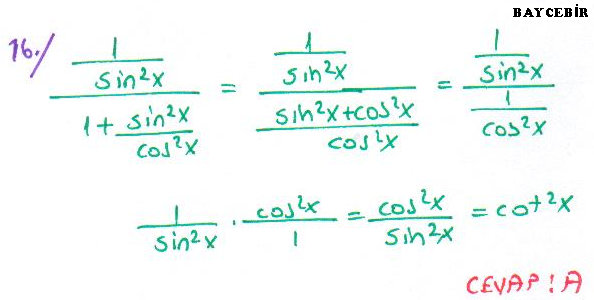 BAYCEBİR
16./ \frac{\frac{1}{sin²x}}{1+\frac{sin²x}{cos²x}} = \frac{\frac{1}{sin²x}}{\frac{sin²x+cos²x}{cos²x}} = \frac{\frac{1}{sin²x}}{\frac{1}{cos²x}}
\frac{1}{sin²x} · \frac{cos²x}{1} = \frac{cos²x}{sin²x} = cot²x
CEVAP : A